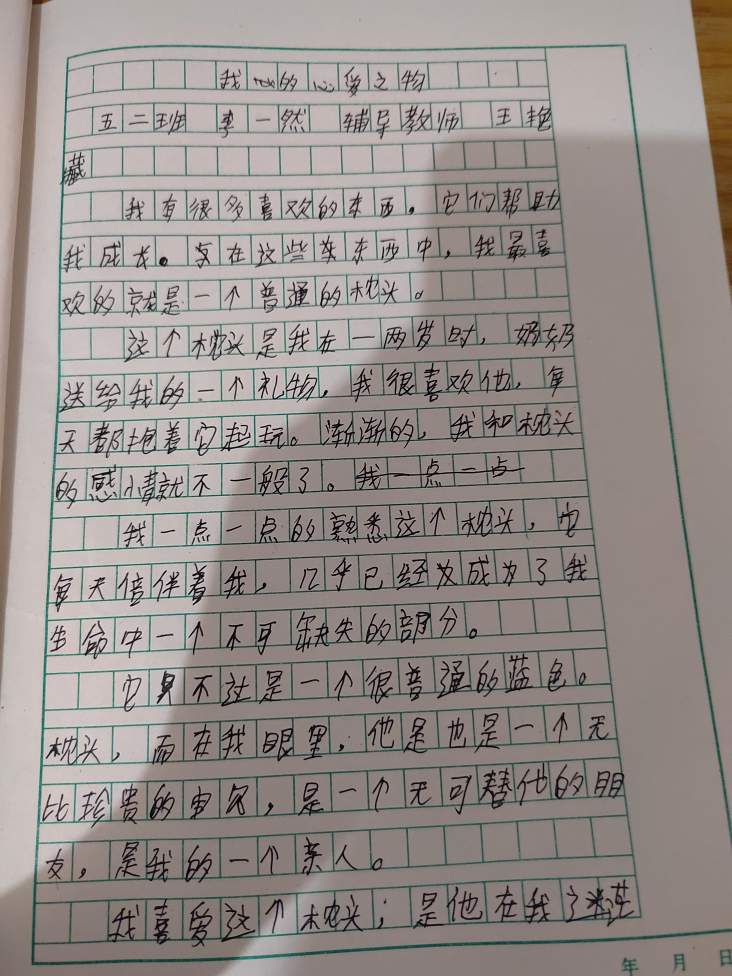 我的心爱之物
五二班 李一然 辅导教师 王艳
藏
我有很多喜欢的东西。它们帮助
我成长。在这些东西中，我最喜
欢的就是一个普通的枕头。
这个枕头是我在一两岁时，奶奶
送给我的一个礼物，我很喜欢他，每
天都抱着它起玩。渐渐的，我和枕头
的感情就不一般了。我一点一点
我一点一点的熟悉这个枕头，它
每天倍伴着我，几乎已经成为了我
生命中一个不可缺失的部分。
它只不过是一个很普通的蓝色。
枕头，而在我眼里，他是也是一个无
比珍贵的宝贝，是一个无可替他的朋
友，是我的一个亲人。
我喜爱这个枕头；是他在我迷茫
年 月 日